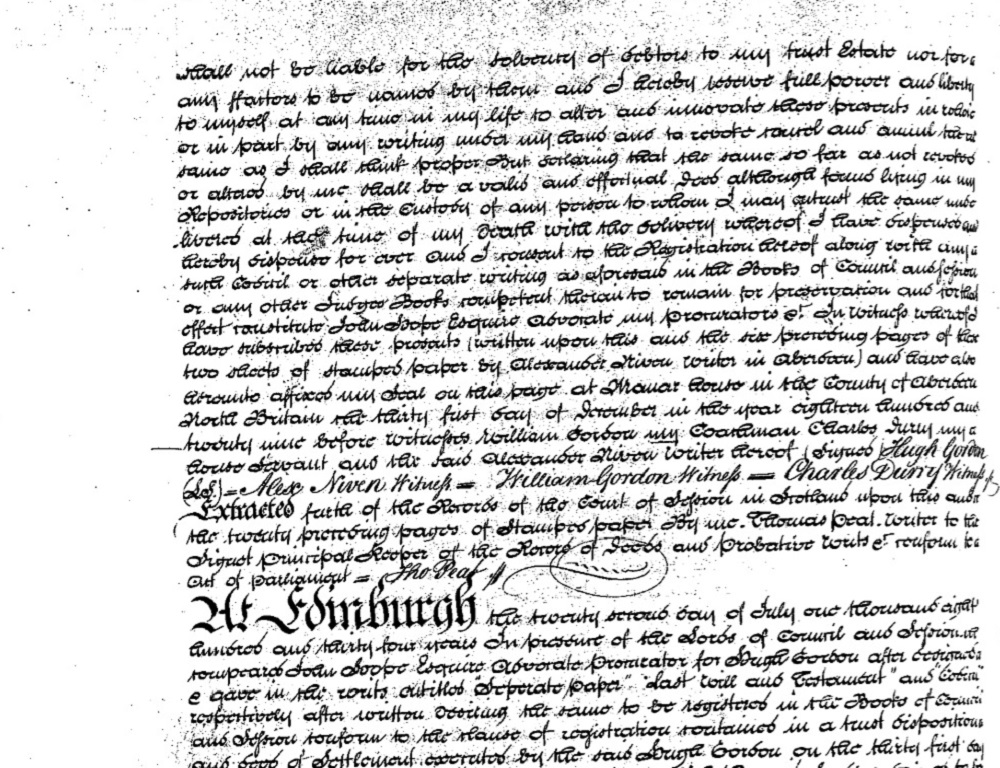 shall not be liable for the solvency of debtors to my trust Estate nor for
any ffactors to be named by them and I hereby reserve full power and liberty
to myself at any time in my life to alter and innovate these presents in whole
or in part by any writing under my hand and to revoke cancel and annul the
same as I shall think proper But declaring that the same so far as not revoked
or altered by me shall be a valid and effectual Deed although found lying in my
Repositories or in the Custody of any person to whom I may entrust the same unde
livered at the time of my Death with the delivery whereof I have dispensed and
hereby dispense for ever And I consent to the Registration hereof along with any
such Codicil or other separate writing as aforesaid in the Books of Council and Session
or any other Judges Books competent therein to remain for preservation and for that
effect constitute John Hope Esquire Advocate my Procurators &c. In witness whereof I
have subscribed these presents (written upon this and the six preceding pages of these
two sheets of stamped paper by Alexander Niven writer in Aberdeen) and have also
hereunto affixed my Seal on this page at Manar house in the County of Aberdeen
North Britain the thirty first day of December in the year eighteen hundred and
twenty nine before witnesses William Gordon my Coachman Charles Durry my
house Servant and the said Alexander Niven writer hereof (Signed) Hugh Gordon
(LS) = Alex Niven Witness = William Gordon Witness = Charles Durry Witness
Extracted furth of the Records of the Court of Session in Scotland upon this and
the twenty preceding pages of Stamped paper By me. Thomas Peat. Writer to the
Signet Principal Keeper of the Record of Deeds and Probative writs &c. conform to
Act of Parliament = Tho Peat
At Edinburgh the twenty second day of July one thousand eight
hundred and thirty four years In presence of the Lords of Council and Session
compeared John Hope Esquire Advocate Procurator for Hugh Gordon after designed
& gave in the writs entitled "Seperate Paper" "Last Will and Testament" and "Codicil"
respectively after written desiring the same to be registered in the Books of Council
and Session conform to the clause of registration contained in a trust disposition
and deed of Settlement executed by the said Hugh Gordon on the thirty first day